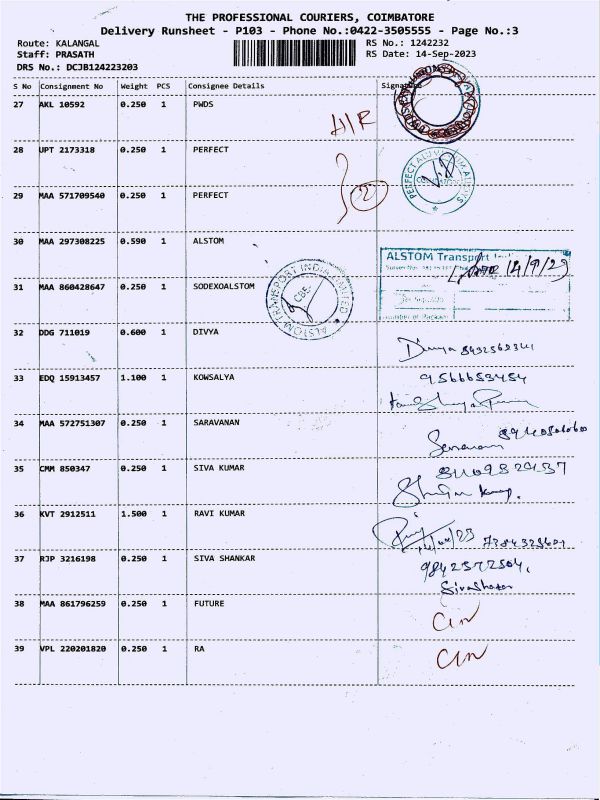 THE PROFESSIONAL COURIERS, COIMBATORE
Delivery Runsheet - P103 - Phone No.:0422-3505555 - Page No.:3
Route: KALANGAL RS No.: 1242232
Staff: PRASATH RS Date: 14-Sep-2023
DRS No.: DCJB124223203
S No Consignment No Weight PCS Consignee Details Signature
27 AKL 10592 0.250 1 PWDS
28 UPT 2173318 0.250 1 PERFECT
PERFECT ALLOY
29 MAA 571709540 0.250 1 PERFECT
2
30 MAA 297308225 0.590 1 ALSTOM
ALSTOM Transport
14/9/23
31 MAA 860428647 0.250 1 SODEXOALSTOM
ALSTOM TRANSPORT INDIA LIMITED
CBE
32 DDG 711019 0.600 1 DIVYA
Divya
33 EDQ 15913457 1.100 1 KOWSALYA
9566653454
34 MAA 572751307 0.250 1 SARAVANAN
35 CMM 850347 0.250 1 SIVA KUMAR
36 KVT 2912511 1.500 1 RAVI KUMAR
37 RJP 3216198 0.250 1 SIVA SHANKAR
9842372504,
38 MAA 861796259 0.250 1 FUTURE
39 VPL 220201820 0.250 1 RA